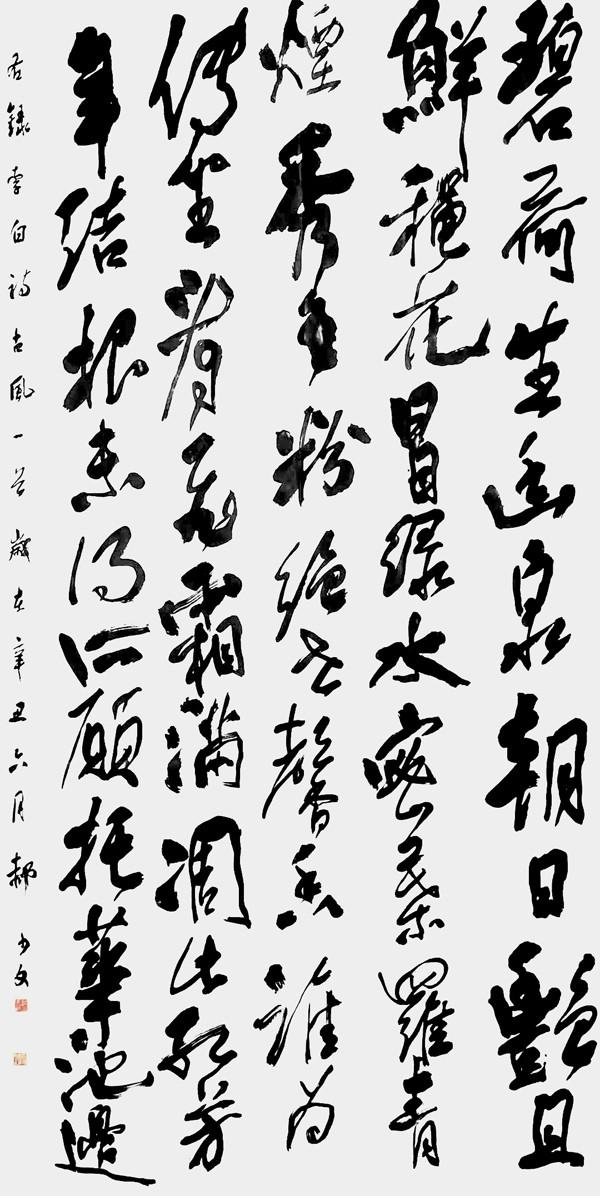 碧荷生幽泉朝日艷且
鮮穐花冒綠水密葉羅青
煙秀色粉絕世馨香誰為
傳坐看飛霜滿凋此紅芳
年結根未得所願托華池邊
右錄李白詩古風一首歲在辛丑六月郝少文